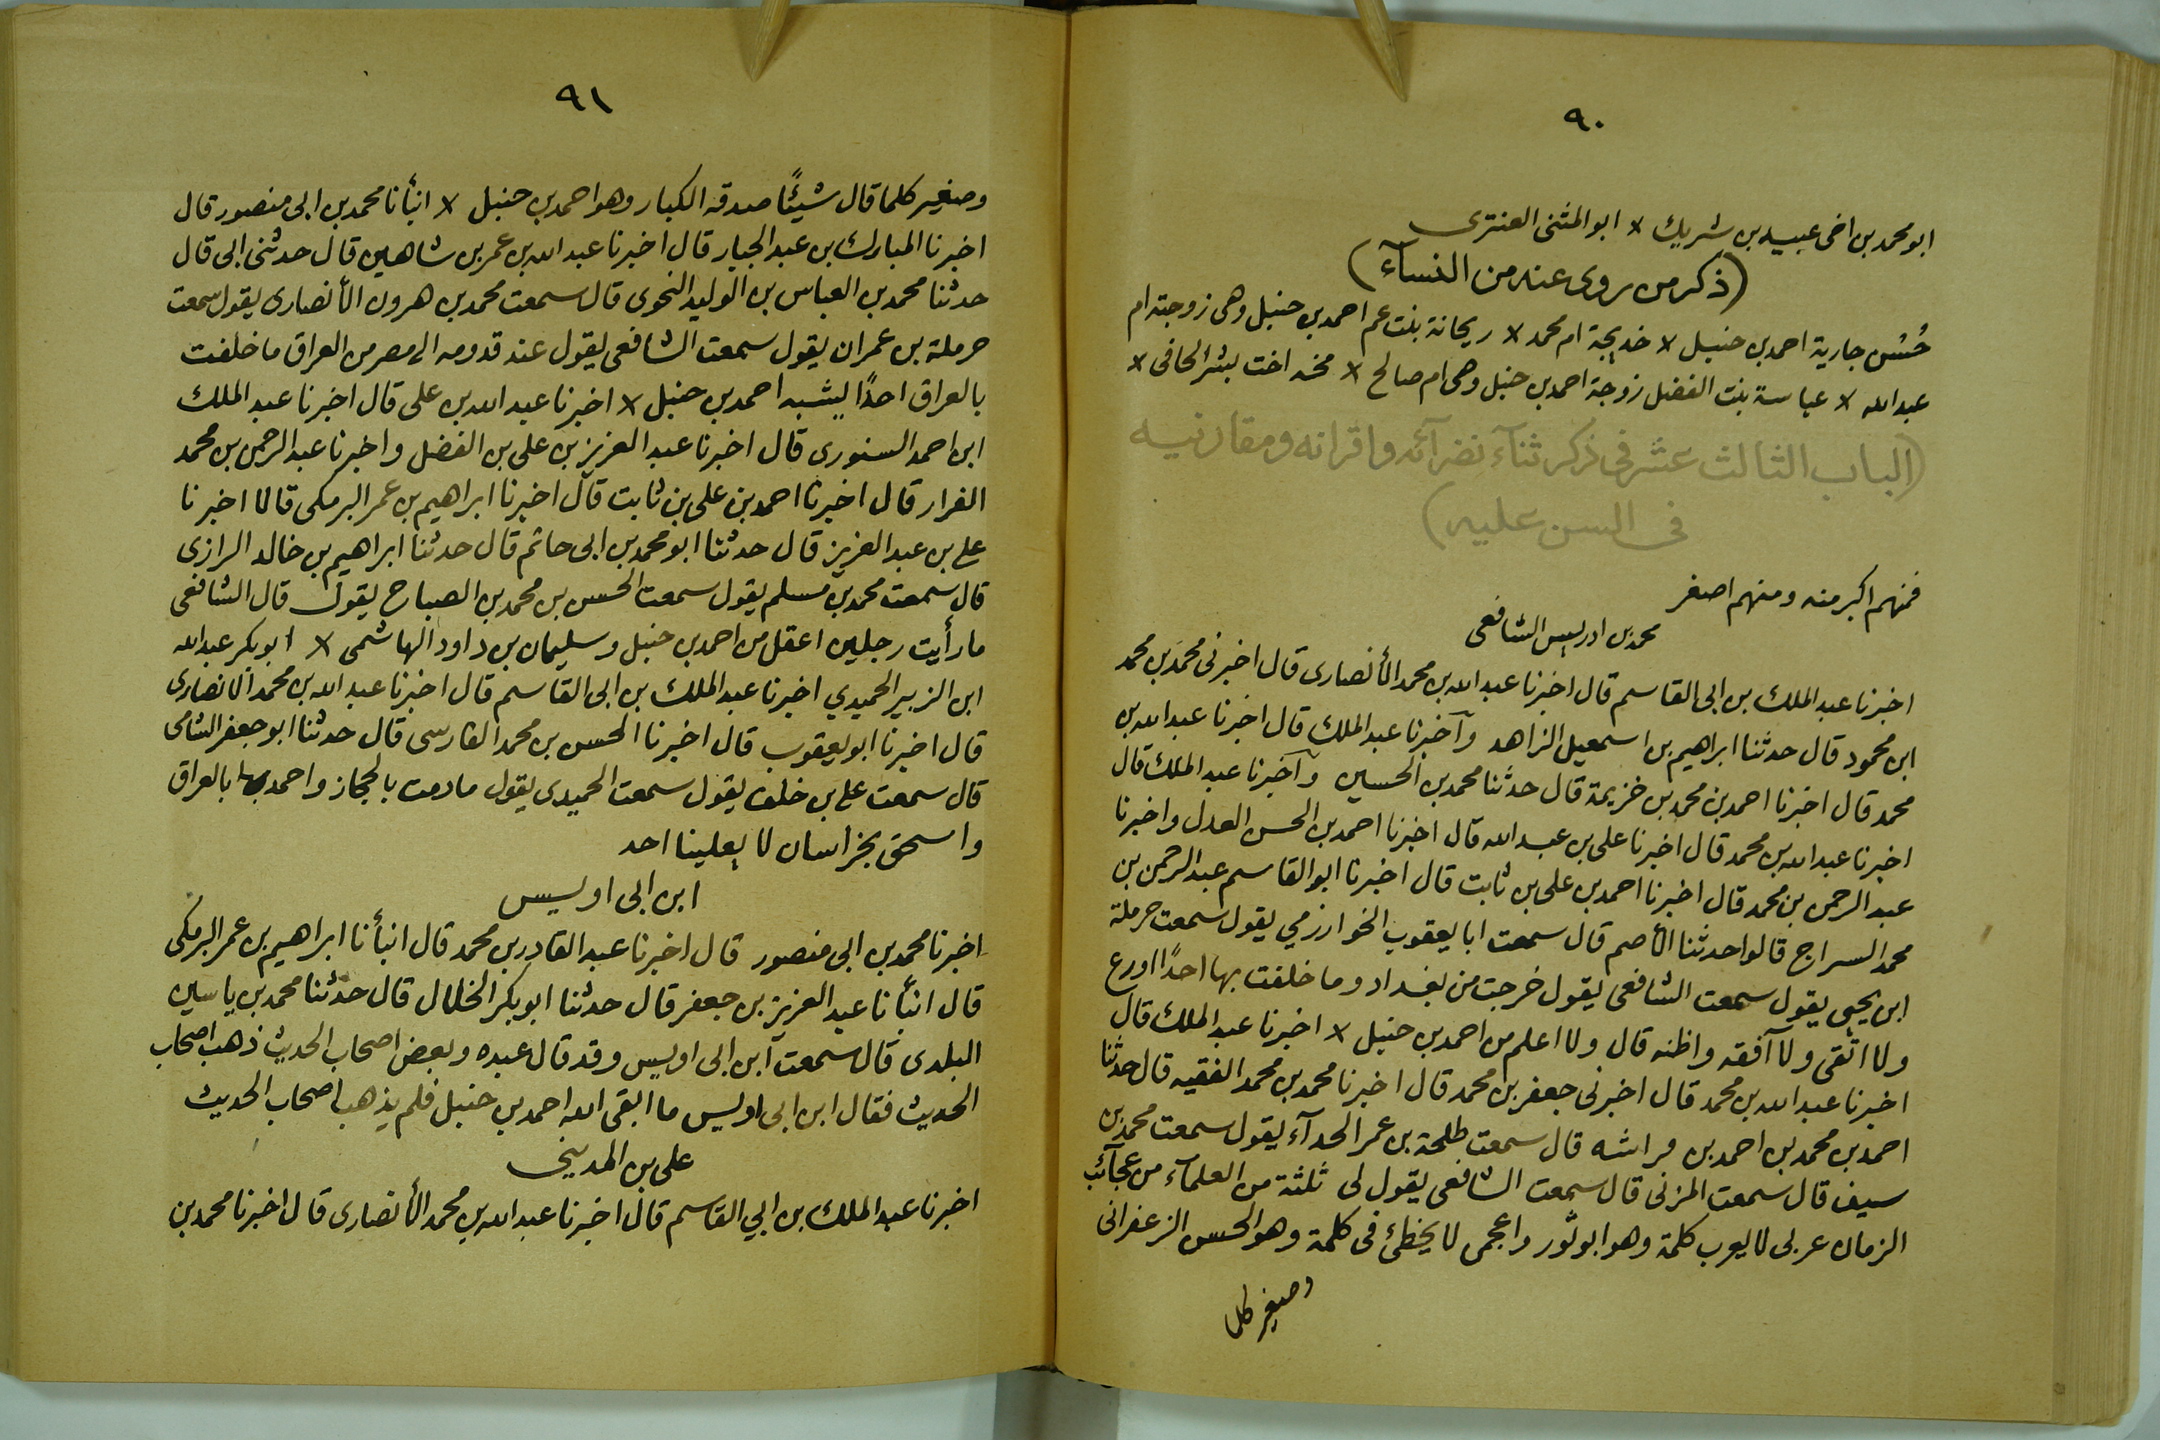 ٩٠
ابو محمد بن اخى عبيد بن شريك × ابو المثنى العنترى
(ذكر من روى عنه من النسآء)
حُسْن جارية احمد بن حنبل × خديجة ام محمد × ريحانة بنت عم احمد بن حنبل وهى زوجته ام
عبد الله × عباسة بنت الفضل زوجة احمد بن حنبل وهى ام صالح × مخه اخت بشر الحافى ×
(الباب الثالث عشر فى ذكر ثنآء نضرآئه واقرانه ومقارنيه
فى السن عليه)
فمنهم اكبر منه ومنهم اصغر
محمد بن ادريس الشافعى
اخبرنا عبد الملك بن ابى القاسم قال اخبرنا عبد الله بن محمد الأنصارى قال اخبرنى محمد بن محمد
ابن محمود قال حدثنا ابراهيم بن اسمعيل الزاهد وآخبرنا عبد الملك قال اخبرنا عبد الله بن
محمد قال اخبرنا احمد بن محمد بن خزيمة قال حدثنا محمد بن الحسين وآخبرنا عبد الملك قال
اخبرنا عبد الله بن محمد قال اخبرنا على بن عبد الله قال اخبرنا احمد بن الحسن العدل واخبرنا
عبد الرحمن بن محمد قال اخبرنا احمد بن على بن ثابت قال اخبرنا ابو القاسم عبد الرحمن بن
محمد السراج قالوا حدثنا الأصم قال سمعت ابا يعقوب الخوارزمي يقول سمعت حرملة
ابن يحيى يقول سمعت الشافعى يقول خرجت من بغداد وما خلفت بها احدًا اورع
ولا اتقى ولا آفقه واظنه قال ولا اعلم من احمد بن حنبل × اخبرنا عبد الملك قال
اخبرنا عبد الله بن محمد قال اخبرنى جعفر بن محمد قال اخبرنا محمد بن محمد الفقيه قال حدثنا
احمد بن محمد بن احمد بن مراشه قال سمعت طلحة بن عمر الحدآء يقول سمعت محمد بن
سيف قال سمعت المزنى قال سمعت الشافعى يقول لى ثلثة من العلمآء من عجآئب
الزمان عربى لا يعرب كلمة وهو ابو ثور واعجمى لا يخطئ فى كلمة وهو الحسن الزعفرانى
وصغير كلما
٩١
وصغير كلما قال شيئًا صدقه الكبار وهو احمد بن حنبل × انبأنا محمد بن ابى منصور قال
اخبرنا المبارك بن عبد الجبار قال اخبرنا عبد الله بن عمر بن شاهين قال حدثنى ابى قال
حدثنا محمد بن العباس بن الوليد النحوى قال سمعت محمد بن هرون الأنصارى يقول سمعت
حرملة بن عمران يقول سمعت الشافعى يقول عند قدومه الى مصر من العراق ما خلفت
بالعراق احدًا يشبه احمد بن حنبل × اخبرنا عبد الله بن على قال اخبرنا عبد الملك
ابن احمد السنورى قال اخبرنا عبد العزيز بن على بن الفضل واخبرنا عبد الرحمن بن محمد
الفرار قال اخبرنا احمد بن على بن ثابت قال اخبرنا ابراهيم بن عمر البرمكى قالا اخبرنا
على بن عبد العزيز قال حدثنا ابو محمد بن ابى حاتم قال حدثنا ابراهيم بن خالد الرازى
قال سمعت محمد بن مسلم يقول سمعت الحسن بن محمد بن الصباح يقول قال الشافعى
ما رأيت رجلين اعقل من احمد بن حنبل وسليمان بن داود الهاشمى × ابو بكر عبد الله
ابن الزبير الحميدي اخبرنا عبد الملك بن ابى القاسم قال اخبرنا عبد الله بن محمد الانصارى
قال اخبرنا ابو يعقوب قال اخبرنا الحسن بن محمد الفارسى قال حدثنا ابو جعفر الشامى
قال سمعت على بن خلف يقول سمعت الحميدى يقول ما دمت بالحجاز واحمد بالعراق
واسحق بخراسان لا يعلينا احد
ابن ابى اويس
اخبرنا محمد بن ابى منصور قال اخبرنا عبد القادر بن محمد قال انبأنا ابراهيم بن عمر البرمكى
قال انبأنا عبد العزيز بن جعفر قال حدثنا ابو بكر الخلال قال حدثنا محمد بن ياسين
البلدى قال سمعت آبن ابى اويس وقد قال عبده وبعض اصحاب الحديث ذهب اصحاب
الحديث فقال ابن ابى اويس ما ابقى الله احمد بن حنبل فلم يذهب اصحاب الحديث
على بن المدينى
اخبرنا عبد الملك بن ابي القاسم قال اخبرنا عبد الله بن محمد الأنصارى قال اخبرنا محمد بن